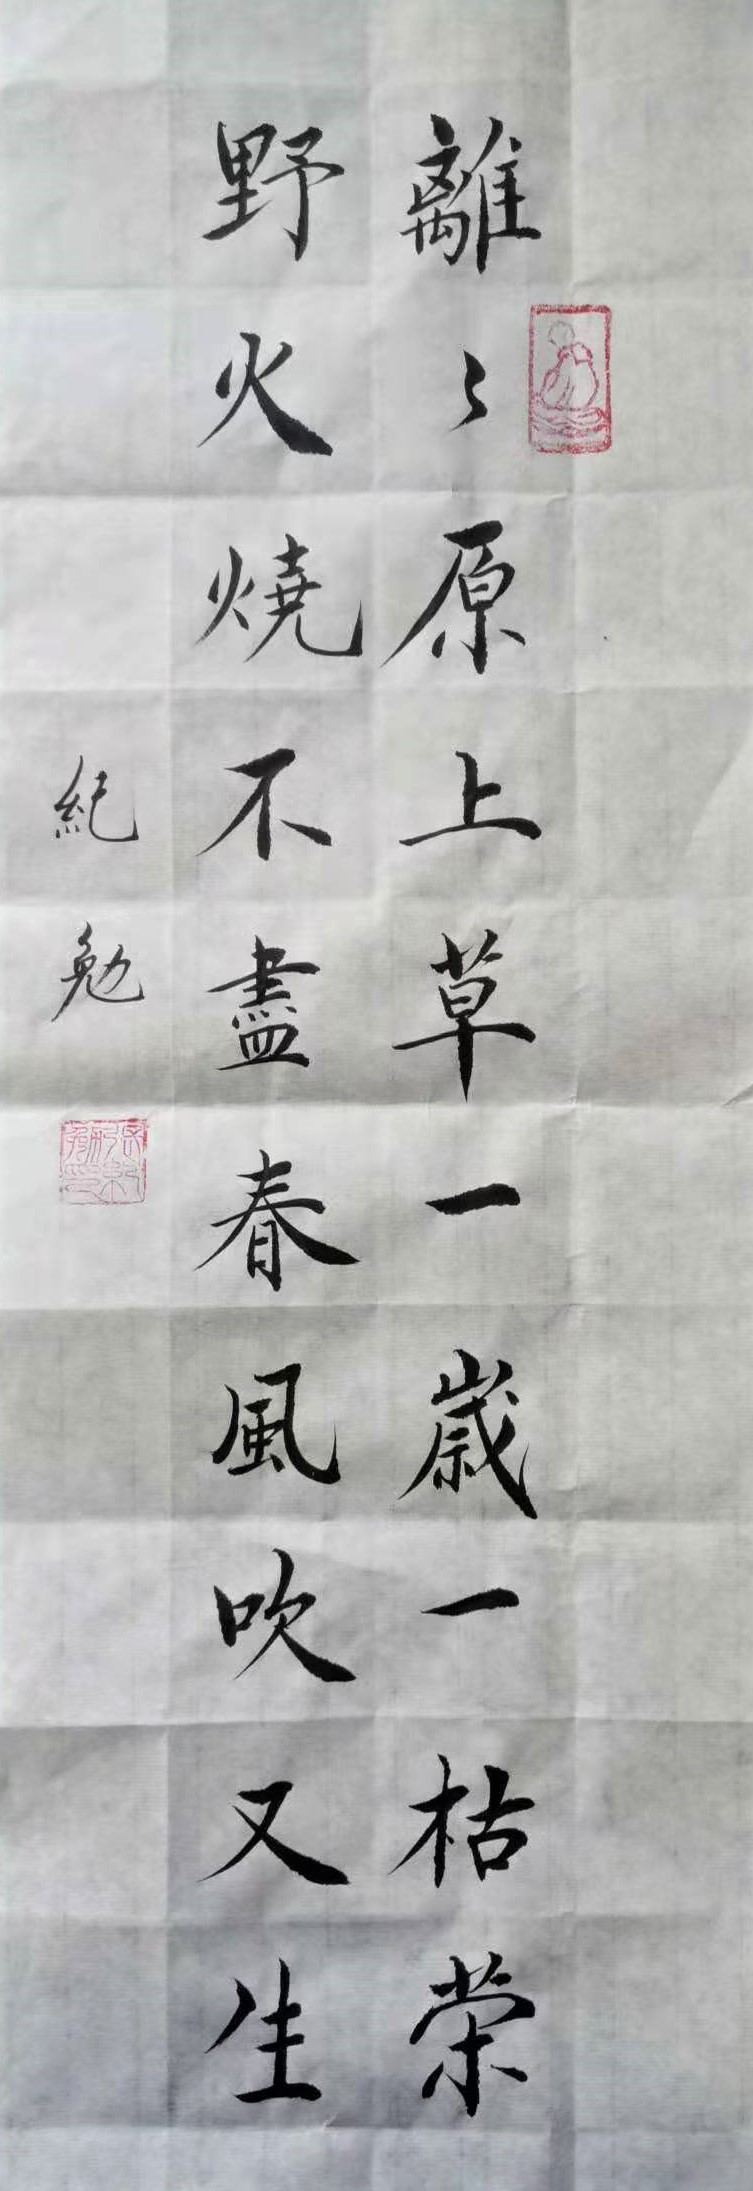 離〻原上草一歲一枯荣
野火燒不盡春風吹又生
紀勉